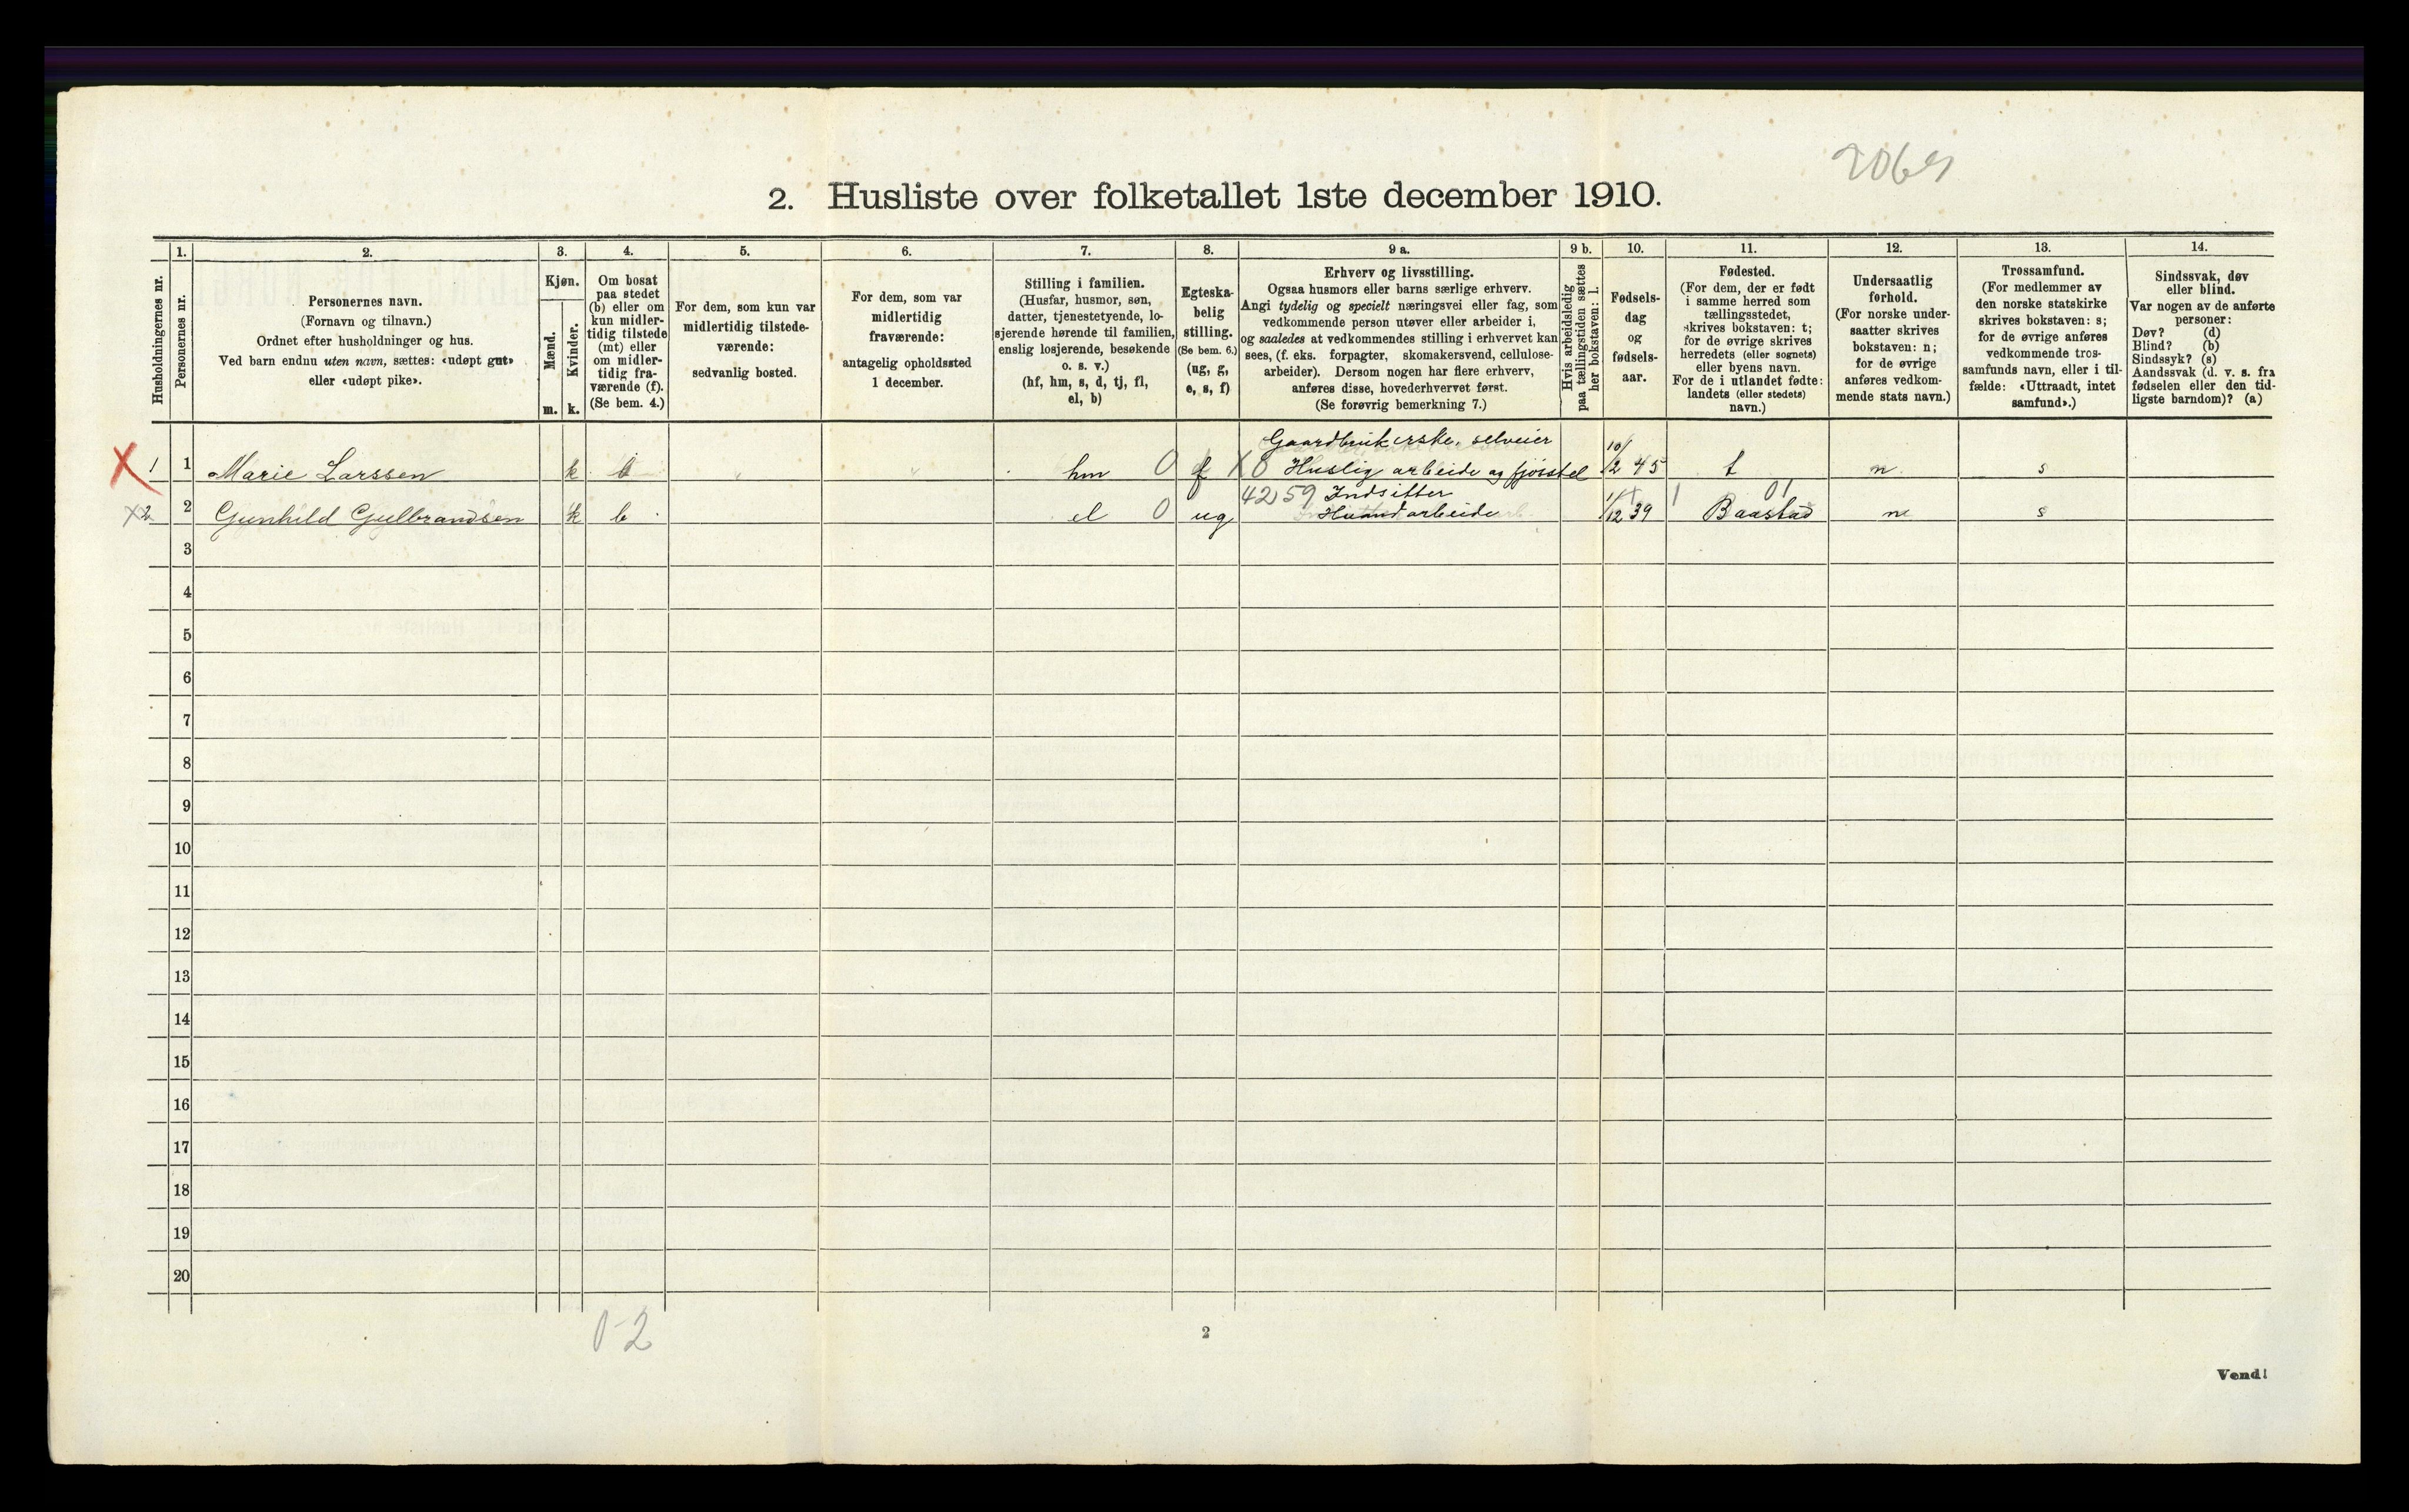 2069
2. Husliste over folketallet 1ste december 1910.
Husholdningernes nr.
1.
Personernes nr.
2.
Personernes navn.
(Fornavn og tilnavn.)
Ordnet efter husholdninger og hus.
Ved barn endnu uten navn, sættes: «udøpt gut»
eller «udøpt pike».
3.
Kjøn.
Mænd.
m.
Kvinder.
k.
4.
Om bosat
paa stedet
(b) eller om
kun midler-
tidig tilstede
(mt) eller
om midler-
tidig fra-
værende (f).
(Se bem. 4.)
5.
For dem, som kun var
midlertidig tilstede-
værende:
sedvanlig bosted.
6.
For dem, som var
midlertidig
fraværende:
antagelig opholdssted
1 december.
7.
Stilling i familien.
(Husfar, husmor, søn,
datter, tjenestetyende, lo-
sjerende hørende til familien,
enslig losjerende, besøkende
o. s. v.)
(hf, hm, s, d, tj, fl,
el, b)
8.
Egteska-
belig
stilling.
(Se bem. 6.)
(ug, g,
e, s, f)
9 a.
Erhverv og livsstilling.
Ogsaa husmors eller barns særlige erhverv.
Angi tydelig og specielt næringsvei eller fag, som
vedkommende person utøver eller arbeider i,
og saaledes at vedkommendes stilling i erhvervet kan
sees, (f. eks. forpagter, skomakersvend, cellulose-
arbeider). Dersom nogen har flere erhverv,
anføres disse, hovederhvervet først.
(Se forøvrig bemerkning 7.)
9 b.
Hvis arbeidsledig
paa tællingstiden sættes
her bokstaven: l.
10.
Fødsels-
dag
og
fødsels-
aar.
11.
Fødested.
(For dem, der er født
i samme herred som
tællingsstedet,
skrives bokstaven: t;
for de øvrige skrives
herredets (eller sognets)
eller byens navn.
For de i utlandet fødte:
landets (eller stedets)
navn.)
12.
Undersaatlig
forhold.
(For norske under-
saatter skrives
bokstaven: n;
for de øvrige
anføres vedkom-
mende stats navn.)
13.
Trossamfund.
(For medlemmer av
den norske statskirke
skrives bokstaven: s;
for de øvrige anføres
vedkommende tros-
samfunds navn, eller i til-
fælde: «Uttraadt, intet
samfund».)
14.
Sindssvak, døv
eller blind.
Var nogen av de anførte
personer:
Døv? (d)
Blind? (b)
Sindssyk? (s)
Aandssvak (d. v. s. fra
fødselen eller den tid-
ligste barndom)? (a)
Gaardbrukerske, selveier
X 1 1 Marie Larssen k b hm 0 f X0 Huslig arbeide og fjösstel 10/2 45 t n s
4259 Indsitter
X 2 2 Gunhild Gulbrandsen k b el 0 ug Haandarbeide 1/12 39 1 Baastad 01 n s
3
4
5
6
7
8
9
10
11
12
13
14
15
16
17
18
19
20
0-2
2
Vend!